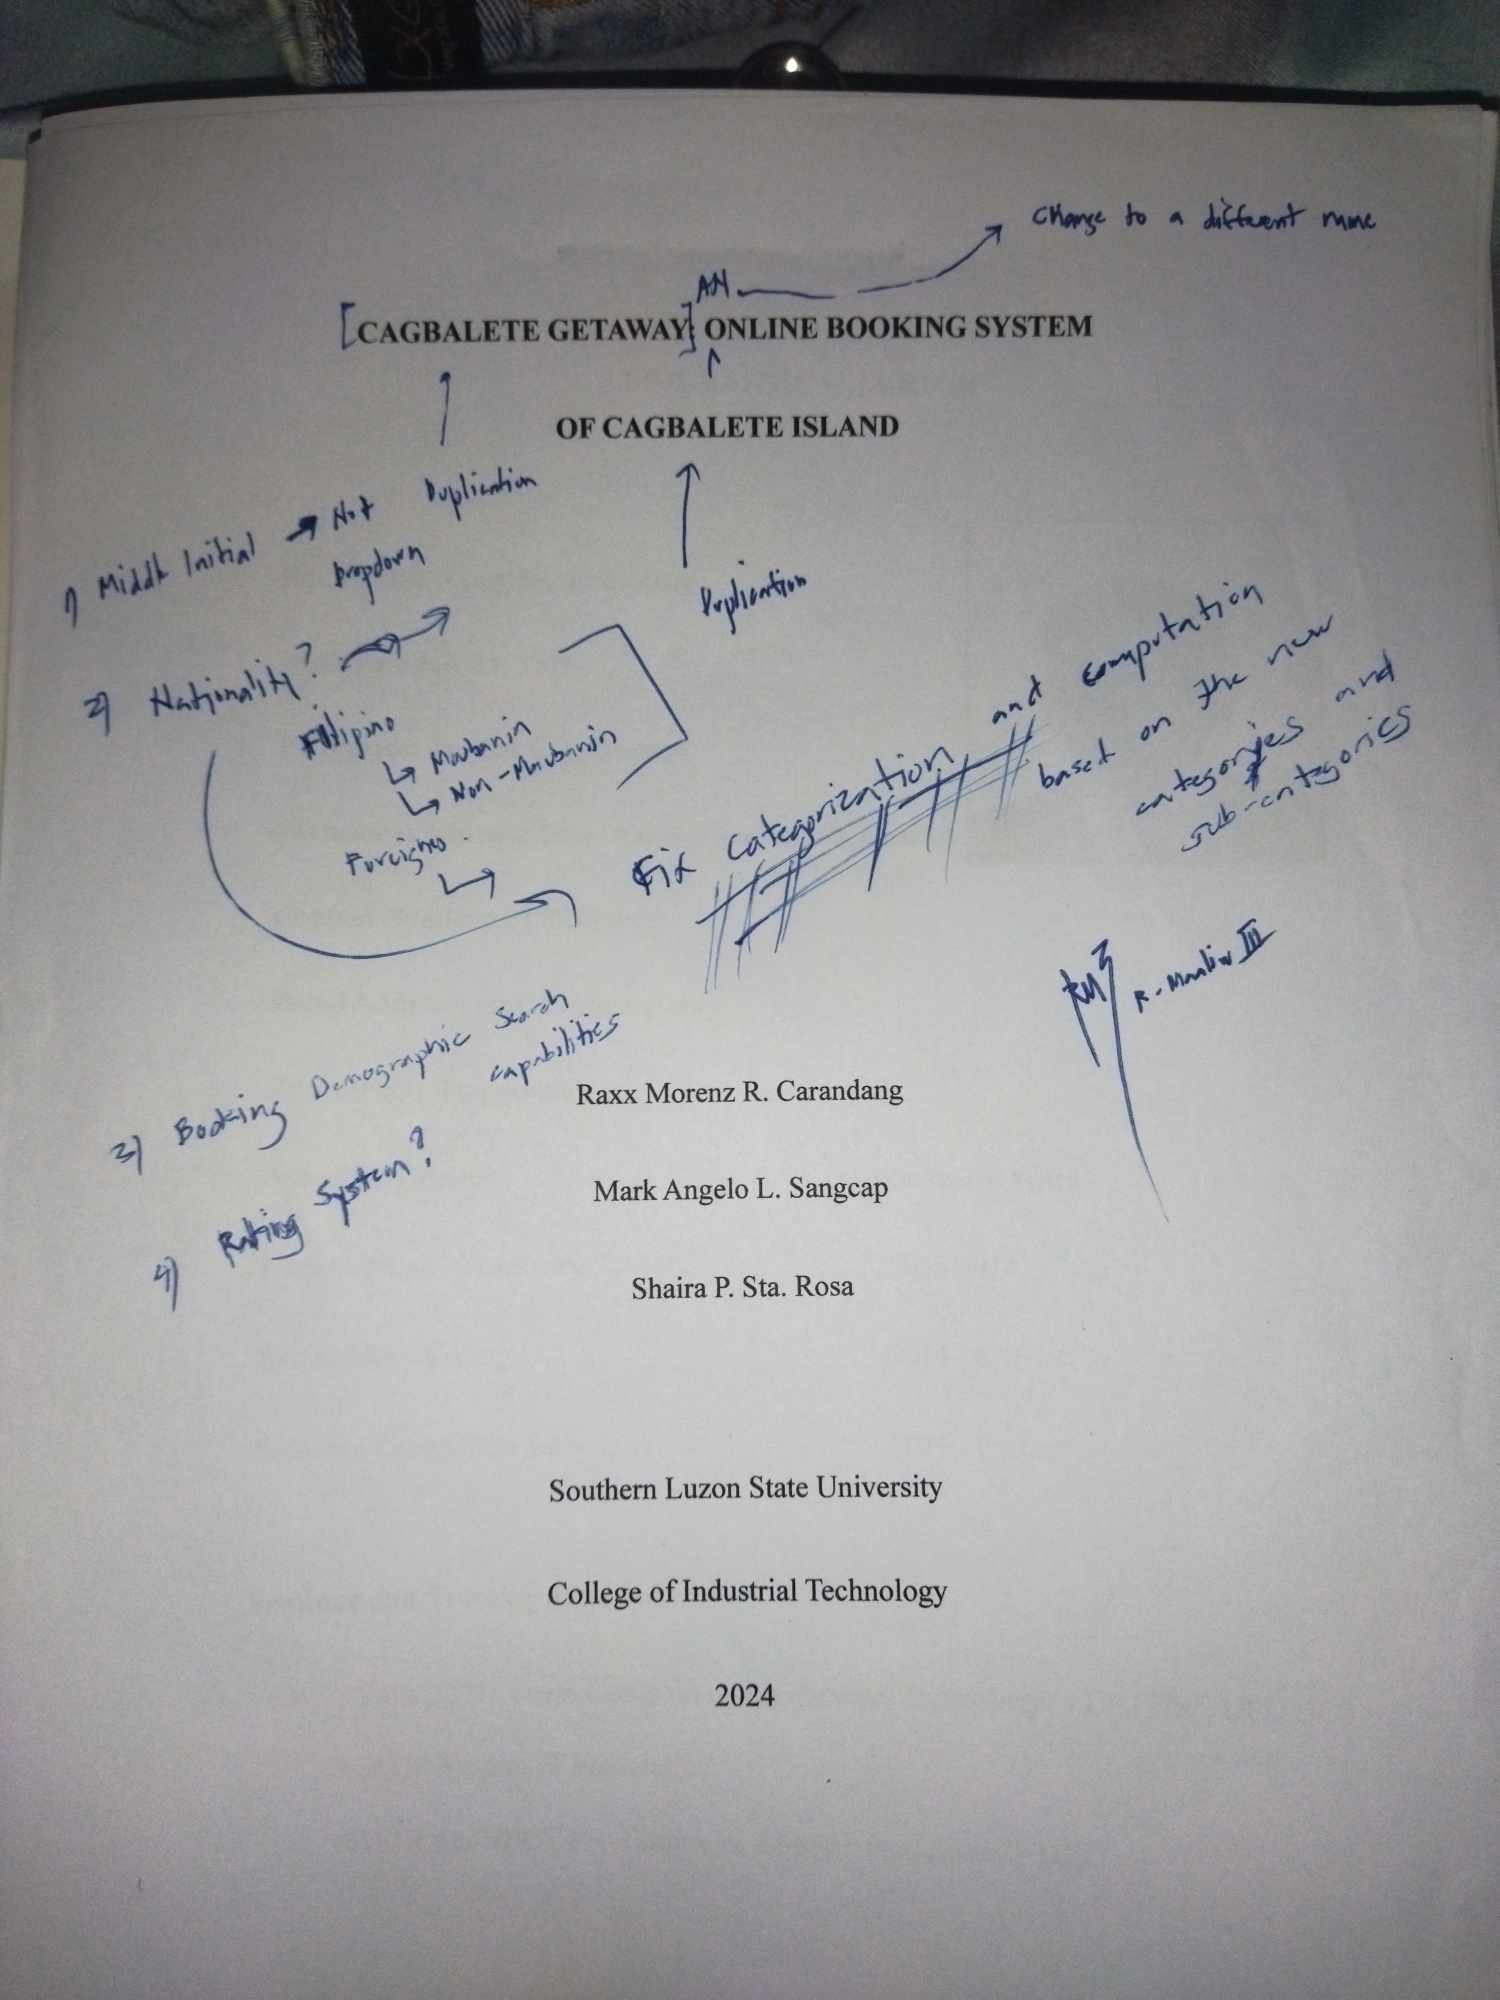 Change to a different name
AN
[CAGBALETE GETAWAY]: ONLINE BOOKING SYSTEM
OF CAGBALETE ISLAND
Duplication
Duplication
1) Middle Initial → Not
Dropdown
2) Nationality?
Filipino
↳ Maubanin
↳ Non-Maubanin
Foreigner
Fix categorization and computation
based on the new
categories and
sub-categories
R. Maaliw III
3) Booking Demographic Search
capabilities
4) Rating System?
Raxx Morenz R. Carandang
Mark Angelo L. Sangcap
Shaira P. Sta. Rosa
Southern Luzon State University
College of Industrial Technology
2024